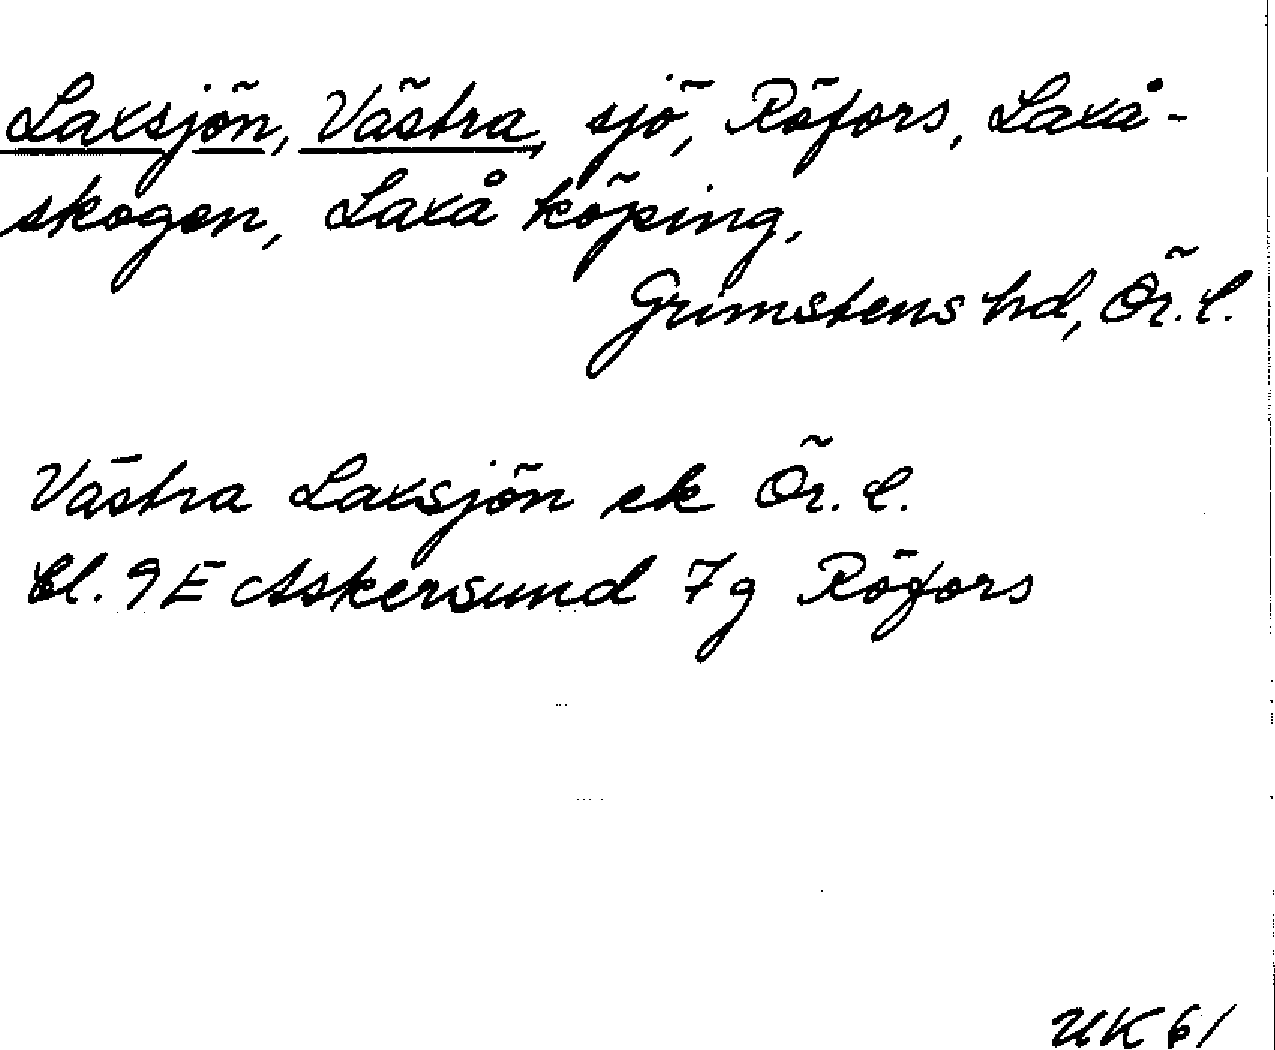 Laxsjön, Västra, sjö, Röfors, Laxå-
skogen, Laxå köping,
Grimstens hd, Ör. l.
Västra Laxsjön ek Ör. l.
bl. 9E Askersund 7g Röfors
UK 61